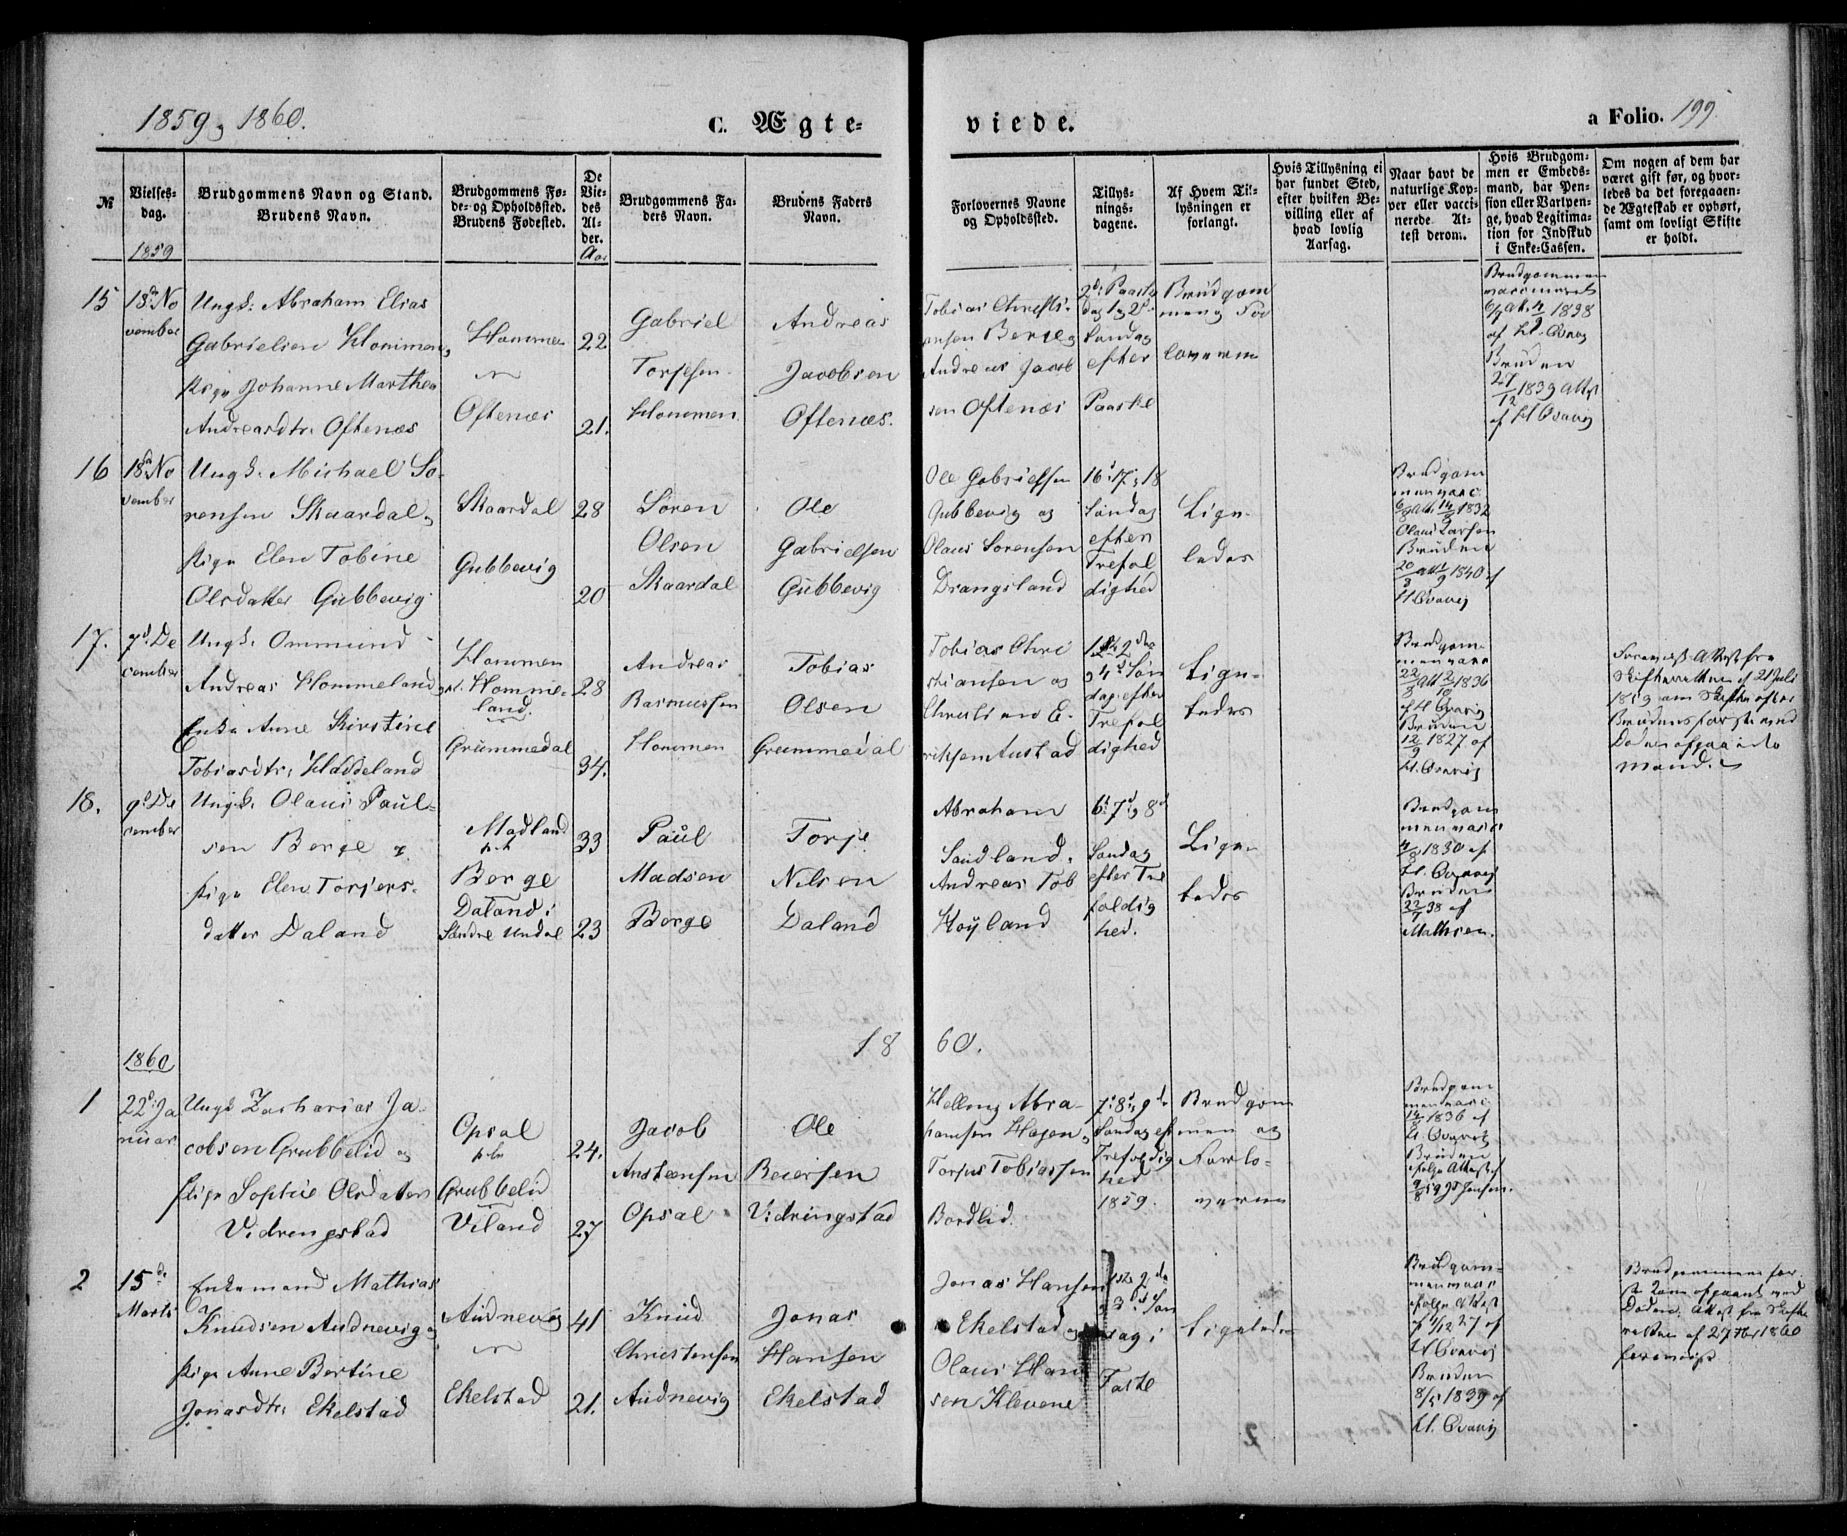 1859 & 1860.
C. Ægteviede.
a Folio. 199.
№
Vielses-
dag.
Brudgommens Navn og Stand.
Brudens Navn.
Brudgommens Fø-
de- og Opholdssted.
Brudens Fødested.
De
Vie-
des
Al-
der.
Aar
Brudgommens Fa-
ders Navn.
Brudens Faders
Navn.
Forlovernes Navne
og Opholdssted.
Tillys-
nings-
dagene.
Af Hvem Til-
lysningen er
forlangt.
Hvis Tillysning ei
har fundet Sted,
efter hvilken Be-
villing eller af
hvad lovlig
Aarsag.
Naar havt de
naturlige Kop-
per eller vacci-
nerede. At-
test derom.
Hvis Brudgom-
men er Embeds-
mand, har Pen-
sion eller Vartpen-
ge, hvad Legitima-
tion for Indskud
i Enke-Cassen.
Om nogen af dem har
været gift før, og hvor-
ledes da det foregaaen-
de Ægteskab er ophørt,
samt om lovligt Skifte
er holdt.
1859
15
18de No
vember
Ungk. Abraham Elias
Gabrielsen Hommen,
Pige Johanne Marthea
Andreasdtr. Oftenæs
Hommen
Oftenæs
22
21.
Gabriel
Torjesen
Hommen.
Andreas
Jacobsen
Oftenæs.
Tobias Christi-
ansen Berge,
Andreas Jacob
sen Oftenæs
2d. Paaske
dag 1 & 2d
Søndag
efter
Paaske
Brudgom
men og For
loveren
Brudgommen
vaccineret
1838
af H. Qvavig
Bruden
27/12 1839 Attest
af H. Qvavig
16
18de No
vember
Ungk. Michael Sø-
rensen Skaardal,
Pige Elen Tobine
Olsdatter Gubbevig.
Skaardal
Gubbevig
28
20
Søren
Olsen
Skaardal
Ole
Gabrielsen
Gubbevig
Ole Gabrielsen
Gubbevig og
Olaus Sørensen
Drangsland
16, 17, 18
Søndag
efter
Trefol
dighed
Lige-
ledes
Brudgom
men vacc.
1832
Olaus Larsen
Bruden
1840 af
H. Qvavig
17.
7d. De
cember
Ungk. Ommund
Andreas Hommeland,
Enke Anne Kirstine
Tobiasdtr. Haddeland
Hommen
Homme-
land.
Grummedal
28
34.
Andreas
Rasmussen
Hommen
Tobias
Olsen
Grummedal
Tobias Chri
stiansen og
Christian E-
riksen Austad
2den
4d Søn
dag efter
Trefol
dighed
Lige-
ledes
Brudgom
men vacc
1836
af H. Qvavig
Bruden
12/9 1827 af
H. Qvavig
Foreviist Attest fra
Skifteretten af 21 Juli
1859 om Skifte efter
Brudens første ved
Døden afgaaede
Mand.
18.
9d. De
cember
Ungk. Olaus Paul-
sen Berge &
Pige Elen Torjers-
datter Daland
Madland
Berge
Daland i
Søndre Undal
33
23
Paul
Madsen
Berge
Torje
Nilsen
Daland
Abraham
Sandland.
Andreas Tob
Høyland
6, 7 & 8d
Søndag
efter Tre
foldig
hed.
Lige-
ledes
Brudgom
men vacc
1830 af
H. Qvavig
Bruden
38 af
Mathsen.
1860.
1860
1
22d. Ja
nuar
Ungk. Zacharias Ja-
cobsen Grubbelid og
Pige Sophie Olsdatter
Vidringstad
Opsal
Grubbelid
Viland
24.
27
Jacob
Anstensen
Opsal
Ole
Beiersen
Vidringstad
Helling Abra-
hamsen Hagen,
Torjus Tobiassen
Bordlid.
7, 8, 9de
Søndag eft
Trefoldig
hed
1859.
Brudgom
men og
Forlo-
veren
Brudgom
men vacc
1836 af
H. Qvavig
Bruden
ifølge Attest af
Jensen.
2
15de
Marts
Enkemand Mathias
Knudsen Audnevig og
Pige Anne Bertine
Jonasdtr. Ekelstad
Audnevig
Ekelstad
41
21.
Knud
Christensen
Audnevig
Jonas
Hansen
Ekelstad
Jonas Hansen
Ekelstad og
Olaus Han
sen Klevene
1ste 2den
& 3d Søn
dag i
Faste
Ligeledes
Brudgom-
men vacc
ifølge Attest
af 27 af
H. Qvavig
Bruden
8/5 1839 af
H. Qvavig
Brudgommens før-
ste Kone afgaaet ved
Døden. Attest fra Skifte
retten af 27 1860
foreviist